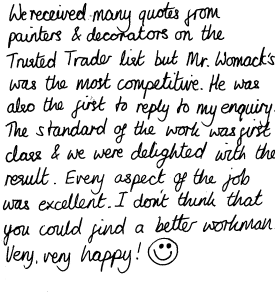 We received many quotes from
painters & decorators on the
Trusted Trader list but Mr. Womack's
was the most competitive. He was
also the first to reply to my enquiry.
The standard of the work was first
class & we were delighted with the
result. Every aspect of the job
was excellent. I don't think that
you could find a better workman.
Very, very happy! ☺